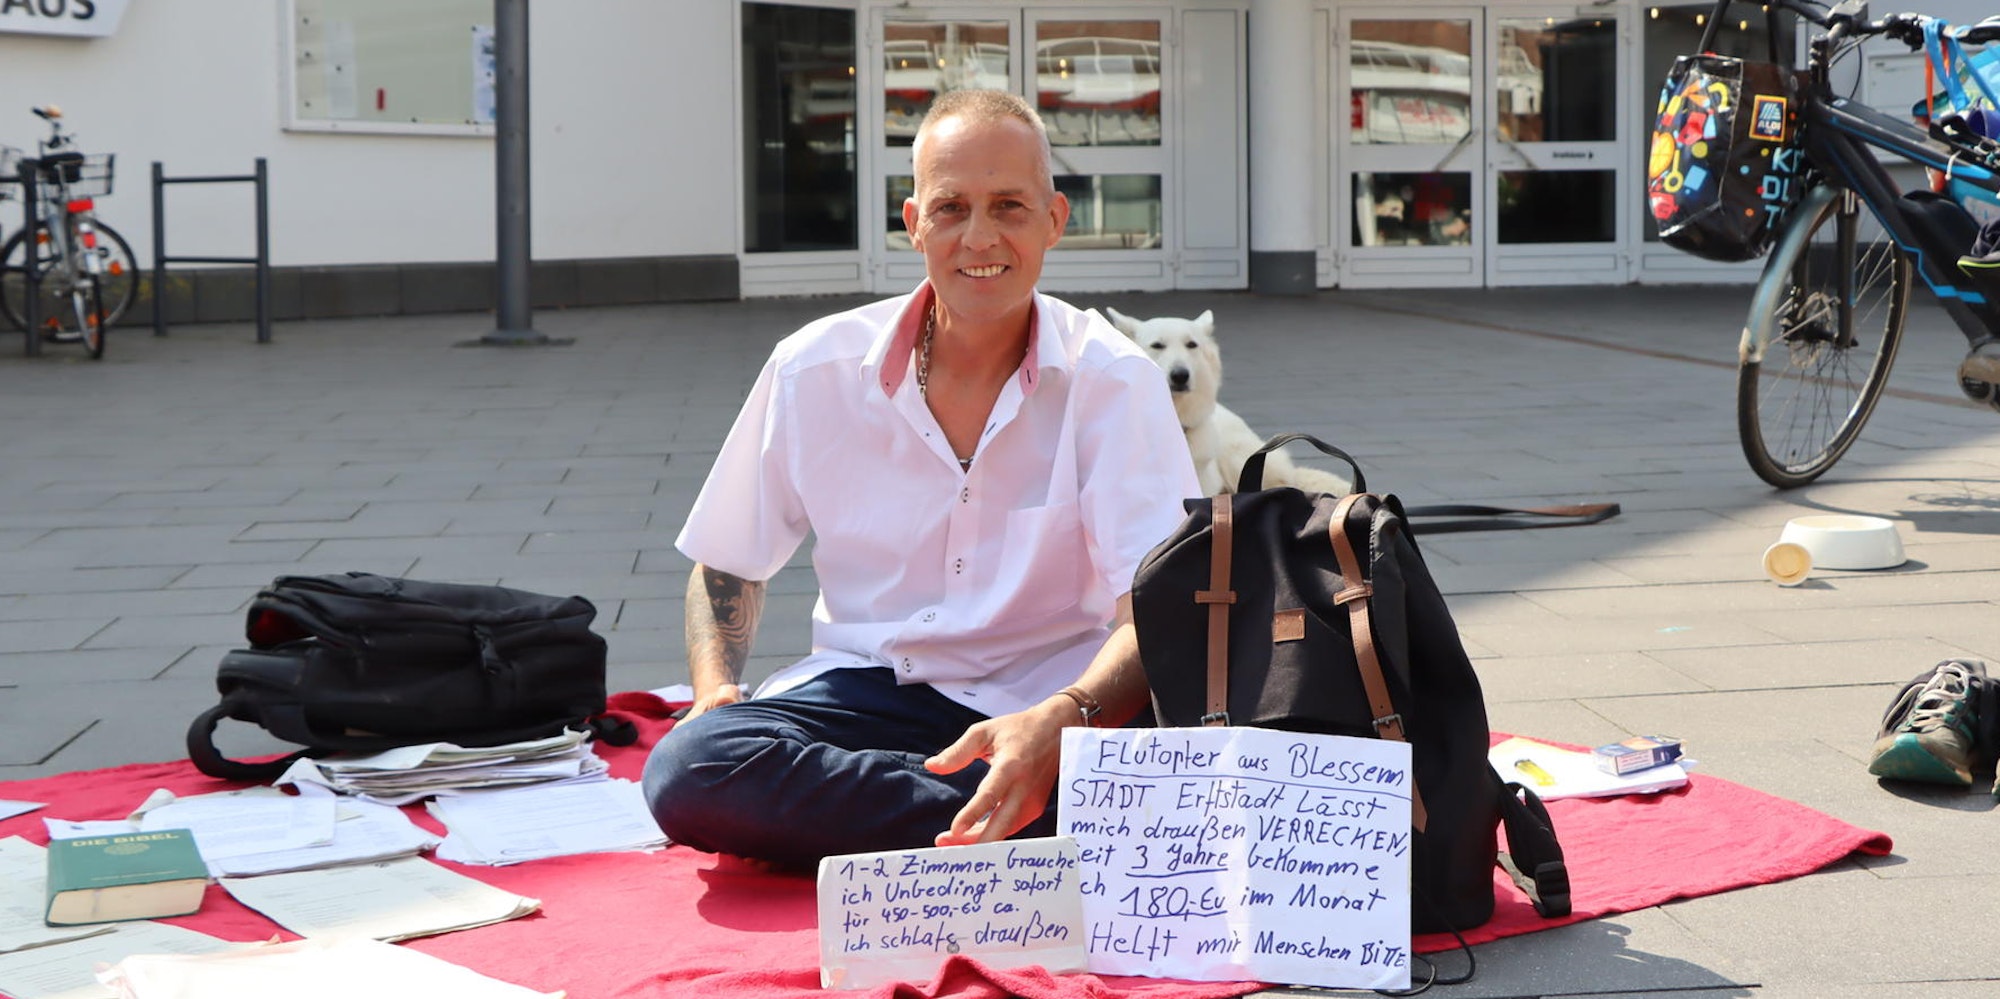 AUS
ALDI
DIE BIBEL
Flutopfer aus Blessem
STADT Erftstadt Lässt
mich draußen VERRECKEN,
seit 3 Jahre bekomme
ich 180,-Eu im Monat
Helft mir Menschen BiTTE
1-2 Zimmer brauche
ich Unbedingt sofort
für 450-500,-Eu ca.
Ich schlafe draußen